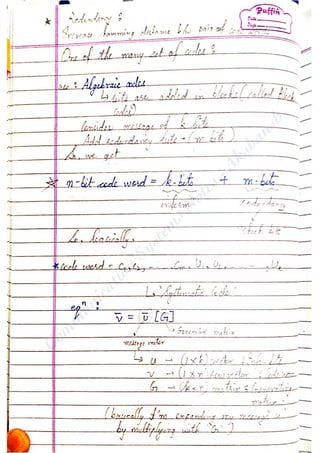 Puffin
Date
Page
* Redundancy :
Increase hamming distance b/w pair of code
One of the many set of codes :
Algebraic codes
↳ bits are added in blocks (called Block
codes)
Consider message of k bits
Add redundancy bits - (m bits)
So, we get
n-bit code word = k-bits + m-bits
inform redundancy
check bits
So, basically,
* code word = C₁, C₂,
↳ "Systematic Code"
eqⁿ :
v̄ = ū [G]
Generator matrix
message vector
↳ u → (1×k) vector
v → (1×n) vector
G → (k×n) matrix : Generation
matrix
(basically I'm expanding my message
by multiplying with "G")